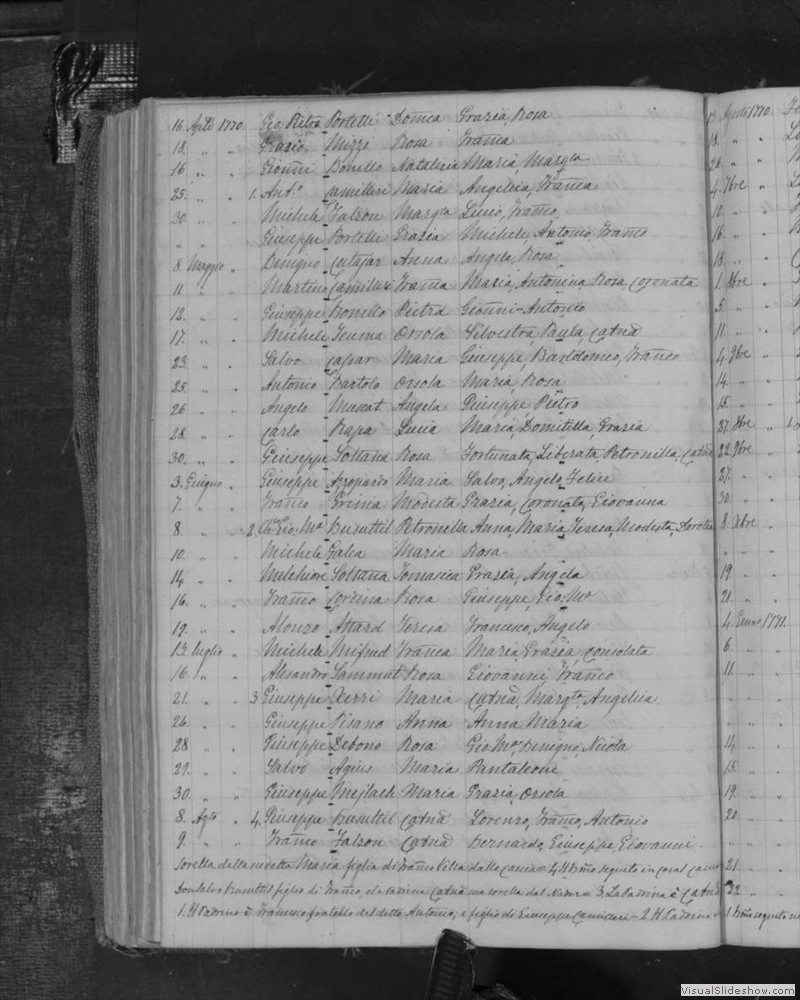 16. Aple 1770 Gio. Pietro Portelli Domca Grazia, Rosa
18. " " Grazio Mizzi Rosa Franca
16. " " Gionni Bonello Natalicia Maria, Margta
25. " " 1. Anto. Camilleri Maria Angelica, Franca
30. " " Michele Falzon Margta Lucio, Franco
" " Giuseppe Portelli Grazia Michele, Antonio, Franco
8. Maggio " Benigno Cutajar Anna Angela, Rosa
11. " " Martino Camilleri Franca Maria, Antonina, Rosa, Coronata
12. " " Giuseppe Bonello Pietra Gionni-Antonio
17. " " Michele Zeuma Orsola Silvestra, Paula, Catna
23. " " Salvo Caspar Maria Giuseppe, Bartolomeo, Franco
25. " " Antonio Bartolo Orsola Maria, Rosa
26 " " Angelo Muscat Angela Giuseppe, Pietro
28. " " Carlo Rapa Lucia Maria, Domitilla, Grazia
30. " " Giuseppe Soltana Rosa Fortunata, Liberata, Petronilla, Catna
3. Giugno " Giuseppe Azzopardo Maria Salvo, Angelo, Felice
7. " " Franco Grima Modesta Grazia, Coronata, Giovanna
8. " " 2. Gio. Ma. Busuttil Petronella Anna, Maria, Teresa, Modesta, Dorotea
10. " " Michele Galea Maria Rosa
14. " " Melchiore Soltana Tomasica Grazia, Angela
16. " " Franco Cortina Rosa Giuseppe, Gio: Ma
19. " " Alonzo Attard Teresa Francesco, Angelo
13. Luglio " Michele Mifsud Franca Maria, Grazia, Consolata
16. " " Alesandro Sammut Rosa Giovanni, Franco
21. " " 3. Giuseppe Xerri Maria Catna, Margta, Angelica
26. " " Giuseppe Pisano Anna Anna Maria
28 " " Giuseppe Debono Rosa Gio Ma. Benigno, Nicola
29. " " Salvo Agius Maria Pantaleone
30. " " Giuseppe Mejlach Maria Grazia, Orsola
8. Agto " 4. Giuseppe Busuttil Catna Lorenzo, Franco, Antonio
9. " " Franco Falzon Catna Bernardo, Giuseppe, Giovanni
Sorella della sudetta Maria figlia di Franco Villa dalla = 4. Il seguito in casal
Busuttil figlio di Franco, e la Catna sua sorella dal = 3. La Padrina è Catna
1. Il Padrino è Francesco fratello del detto Antonio; e figlio di Giuseppe Camilleri - 2. Il Padrino
13 Agosto 1770
18. " "
26. " "
4. 7bre "
10. " "
16. " "
18. " "
1. 8bre "
5. " "
11. " "
4. 9bre "
14. " "
15. " "
27. 8bre "
22. 9bre "
27. " "
30. " "
8. Xbre "
" "
19. " "
21. " "
4. Genro 1771.
6. " "
11. " "
" "
" "
14. " "
15. " "
19. " "
20 " "
" "
21 " "
22 " "
1. seguito
VisualSlideshow.com